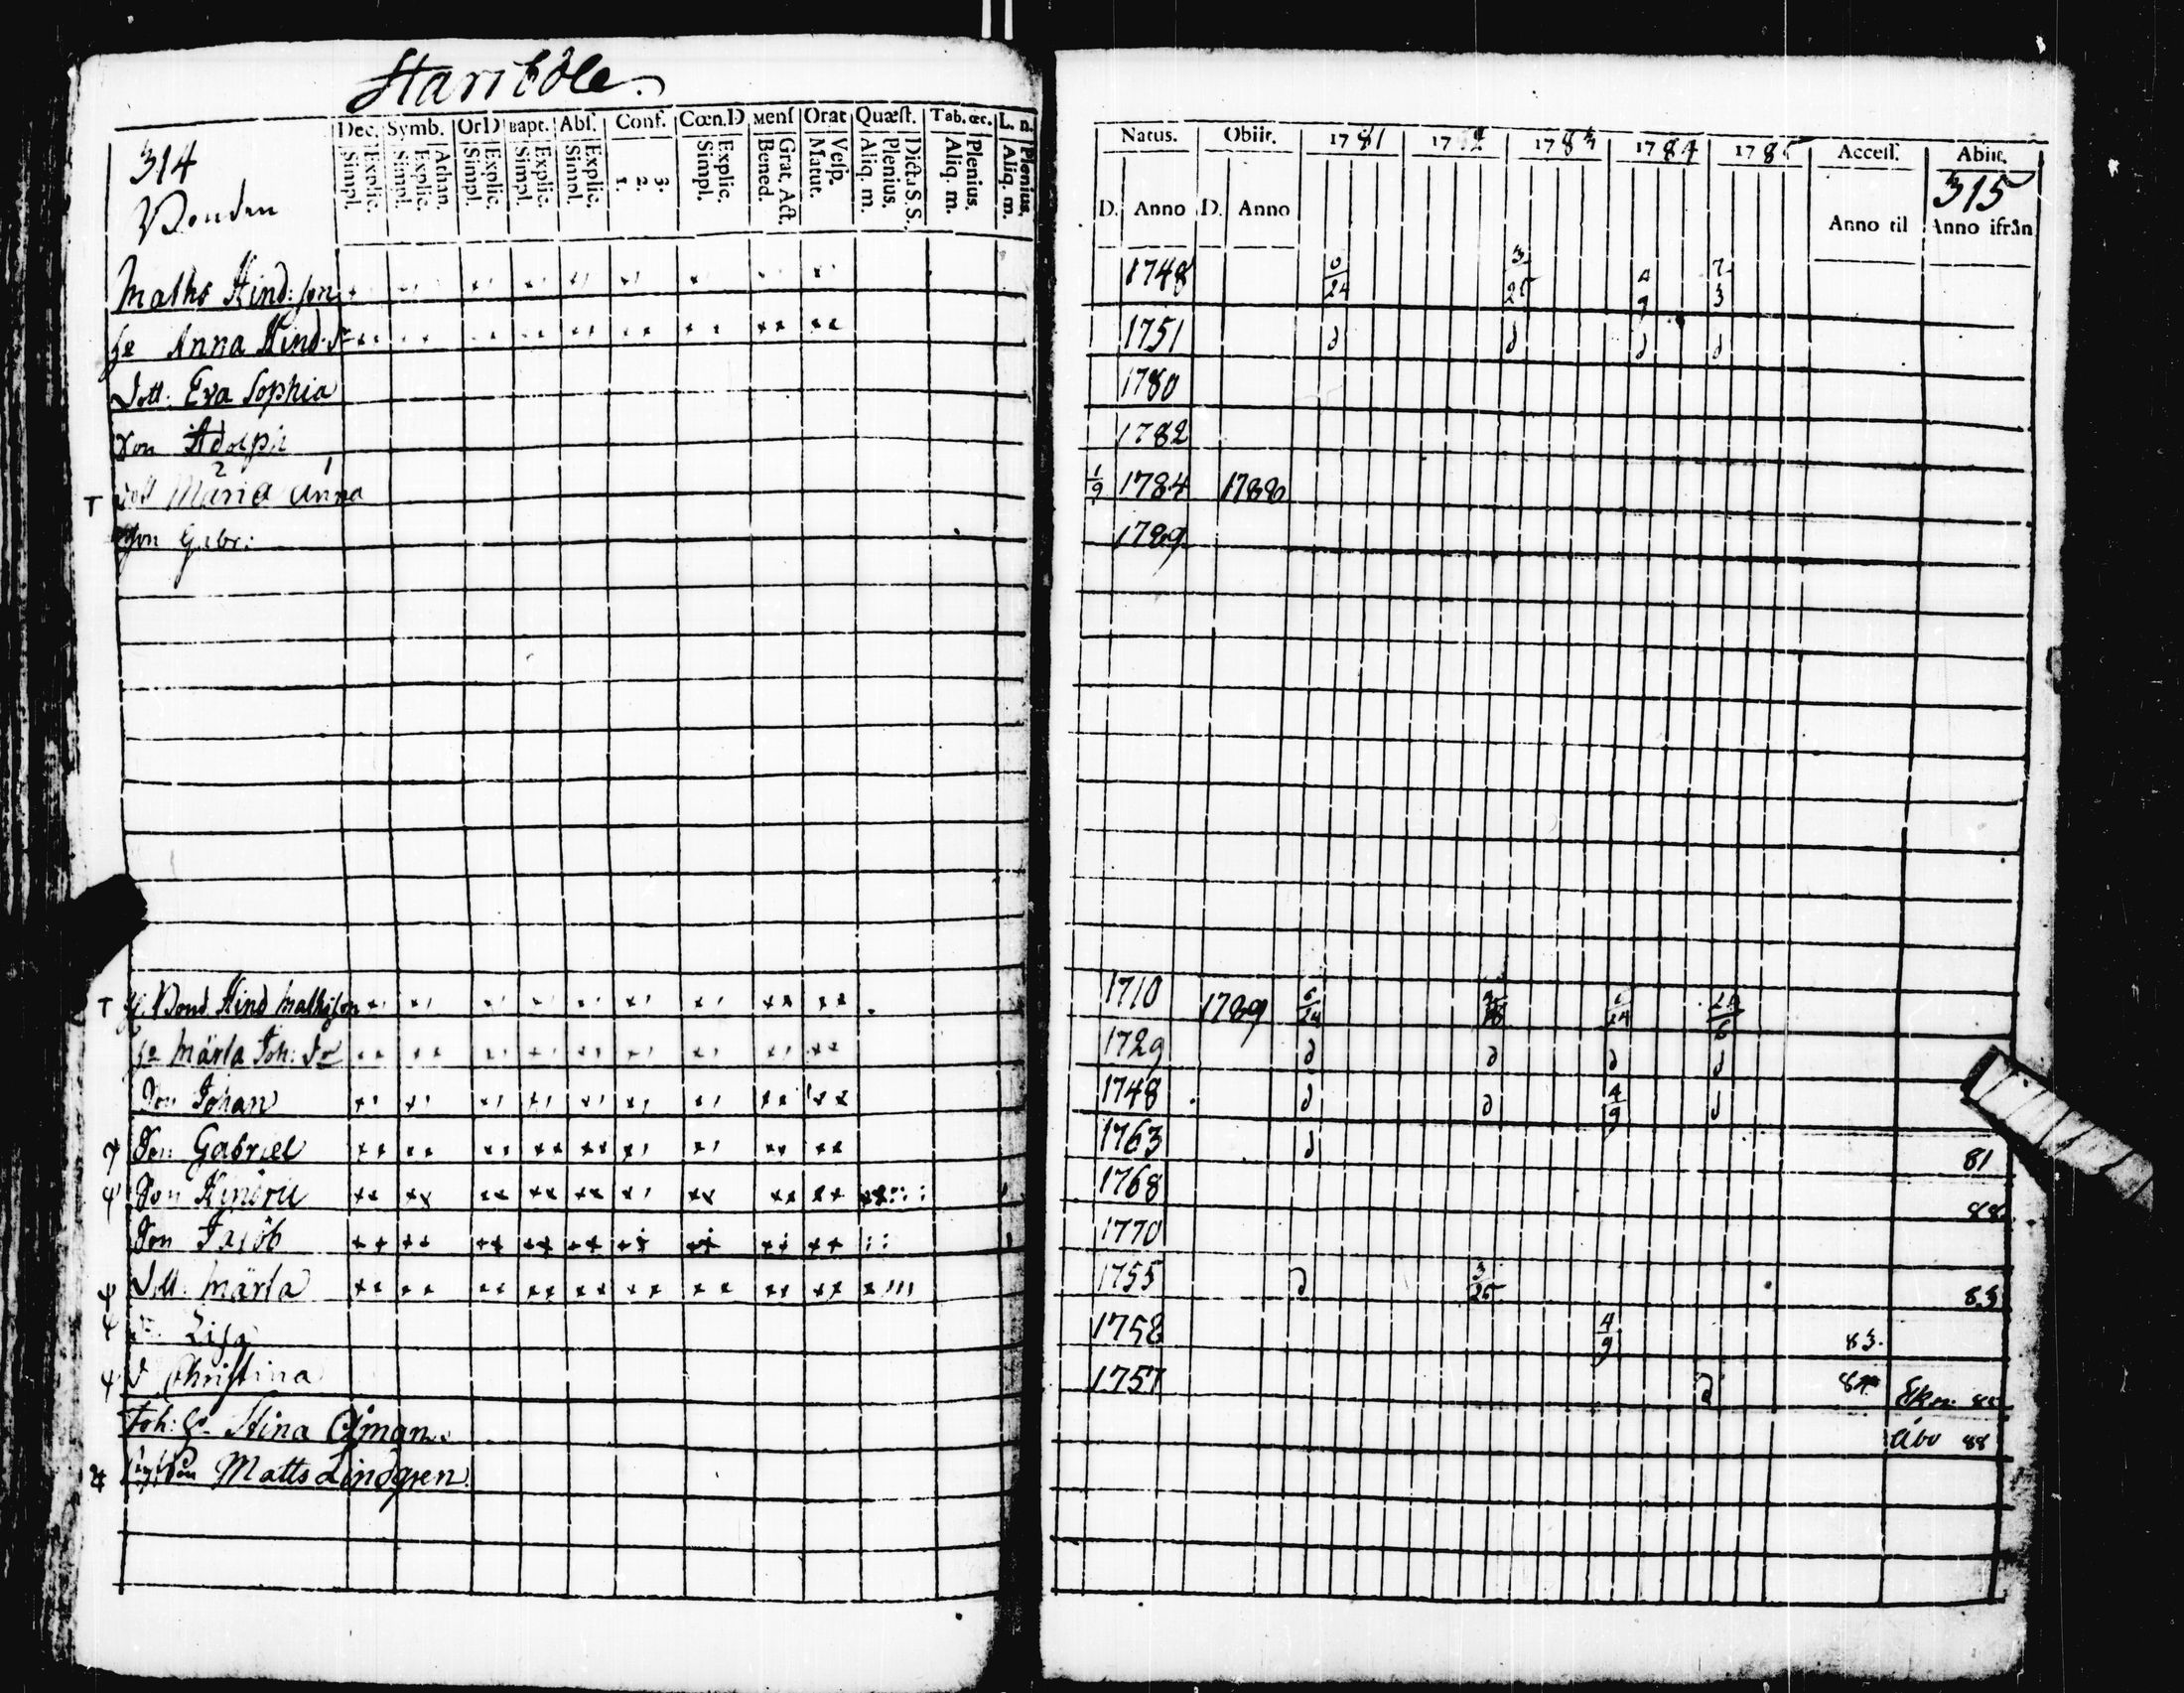 Starrböle.
314
Bonden
Dec. Symb. Or D Bapt. Abs. Conf. Cœn. D Mens Orat Quæst. Tab. œc. L. n.
Simpl. Explic. Simpl. Explic. Athan. Simpl. Explic. Simpl. Explic. Simpl. Explic. 1. 2. 3. Simpl. Explic. Bened. Grat. Act. Matut. Vesp. Aliq. m. Plenius. Dicta S.S. Aliq. m. Plenius. Aliq. m. Plenius.
Natus. Obiit. 1781 1782 1783 1784 1785 Access. Abiit.
315
D. Anno D. Anno Anno til Anno ifrån
Maths Hind:son 1748 6/24 3/25 4/9 7/3
h Anna Hind. dr 1751 d d d d
Dott. Eva Sophia 1780
Son Adolph 1782
T Dott Maria Anna 2 1 1/9 1784 1788
Son Gabr: 1789
T G. Bond Hind Mathsson 1710 1789 6/24
h Märta Joh: dr 1729 d d d d
Son Johan 1748 d d 4/9 d
Son Gabriel 1763 d 81
Son Hindric 1768 88
Son Jacob 1770
Dott. Märta 1755 d 3/25 83
Lisa 1758 4/9 83.
Christina 1757 d 84 Eken 85
Joh: h Stina Öman Åbo 88
Matts Lindgren